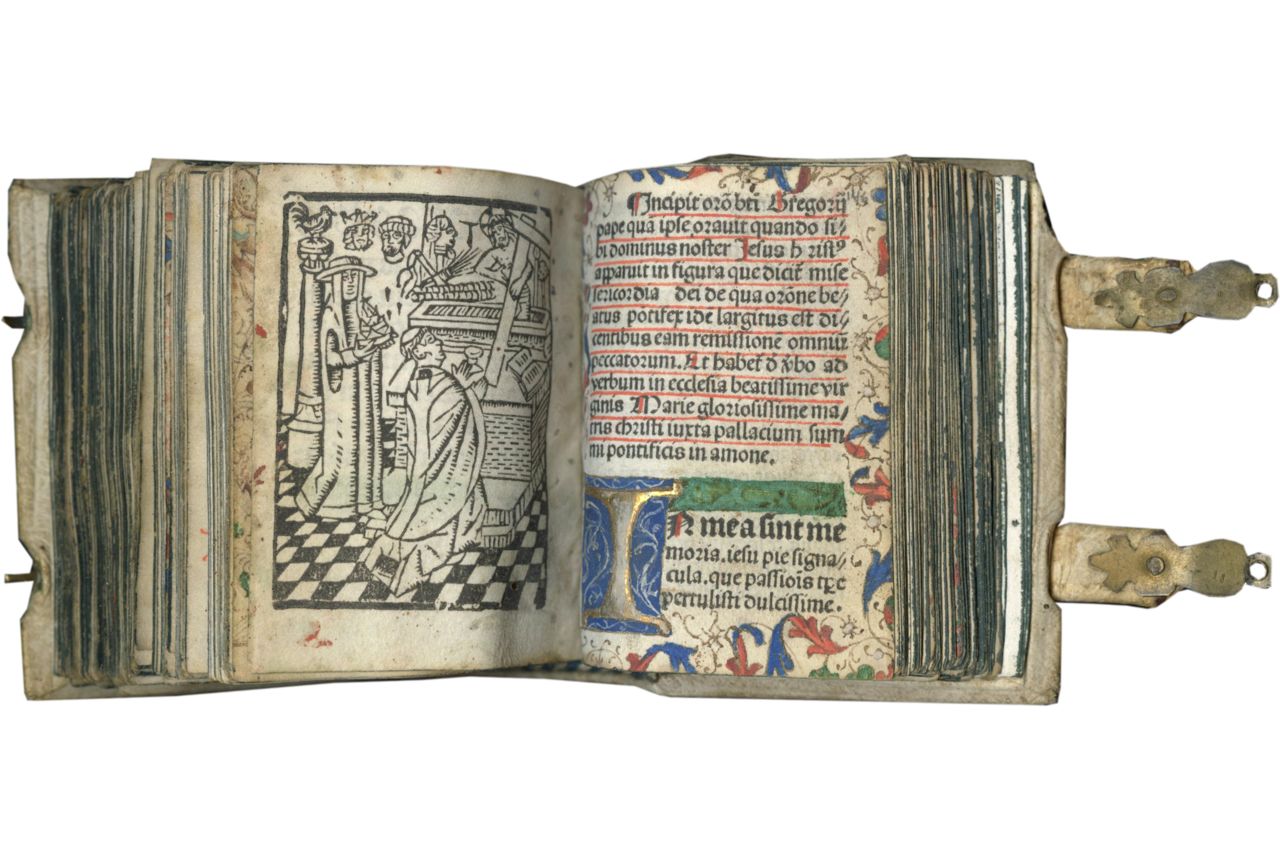 Incipit orõ bti Gregorij
pape quã ipse orauit quando si⸗
bi dominus noster Jesus h ristꝰ
apparuit in figura que dicit̃ mise
sericordia dei de qua orõne be⸗
atus põtifex ide largitus est di⸗
centibus eam remissione omniũ
peccatorum. Et habet̃ d v̾bo ad
verbum in ecclesia beatissime vir
ginis Marie gloriosissime ma⸗
tris christi iuxta pallacium sum
mi pontificis in amone.
IN mẽa sint me
moria. iesu pie signa⸗
cula. que passiõis tpe
pertulisti dulcissime.